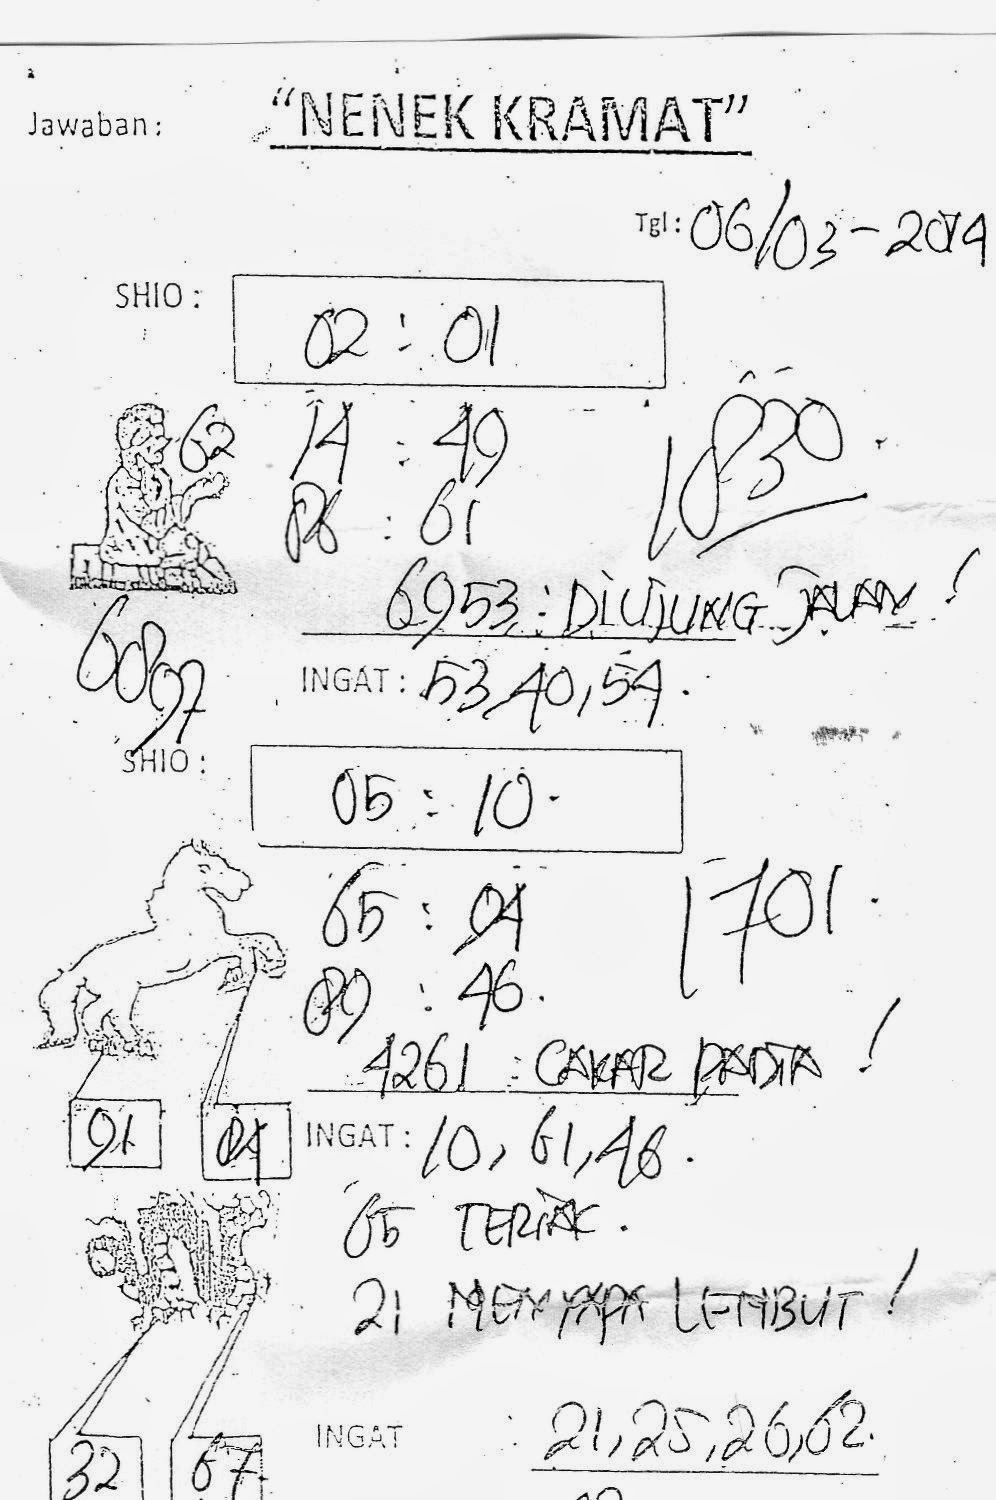 Jawaban :
"NENEK KRAMAT"
Tgl : 06/03-2014
SHIO :
02 : 01
62
14 : 49
1830.
86 : 61
6953 : DIUJUNG JALAN !
6097
INGAT : 53,40,54.
SHIO :
05 : 10.
65 : 04
1701.
89 : 46.
4261 : CAKAR !
91
04
INGAT : 10, 61, 46.
65 TERIAK.
21 MENYAPA LEMBUT !
INGAT : 21, 25, 26, 62.
32
67.